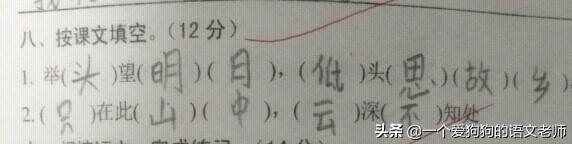 八、按课文填空。(12分)
1. 举(头)望(明)(日),(低)头(思)(故)(乡)
2.(只)在此(山)(中),(云)深(不)知处
头条 @一个爱狗狗的语文老师